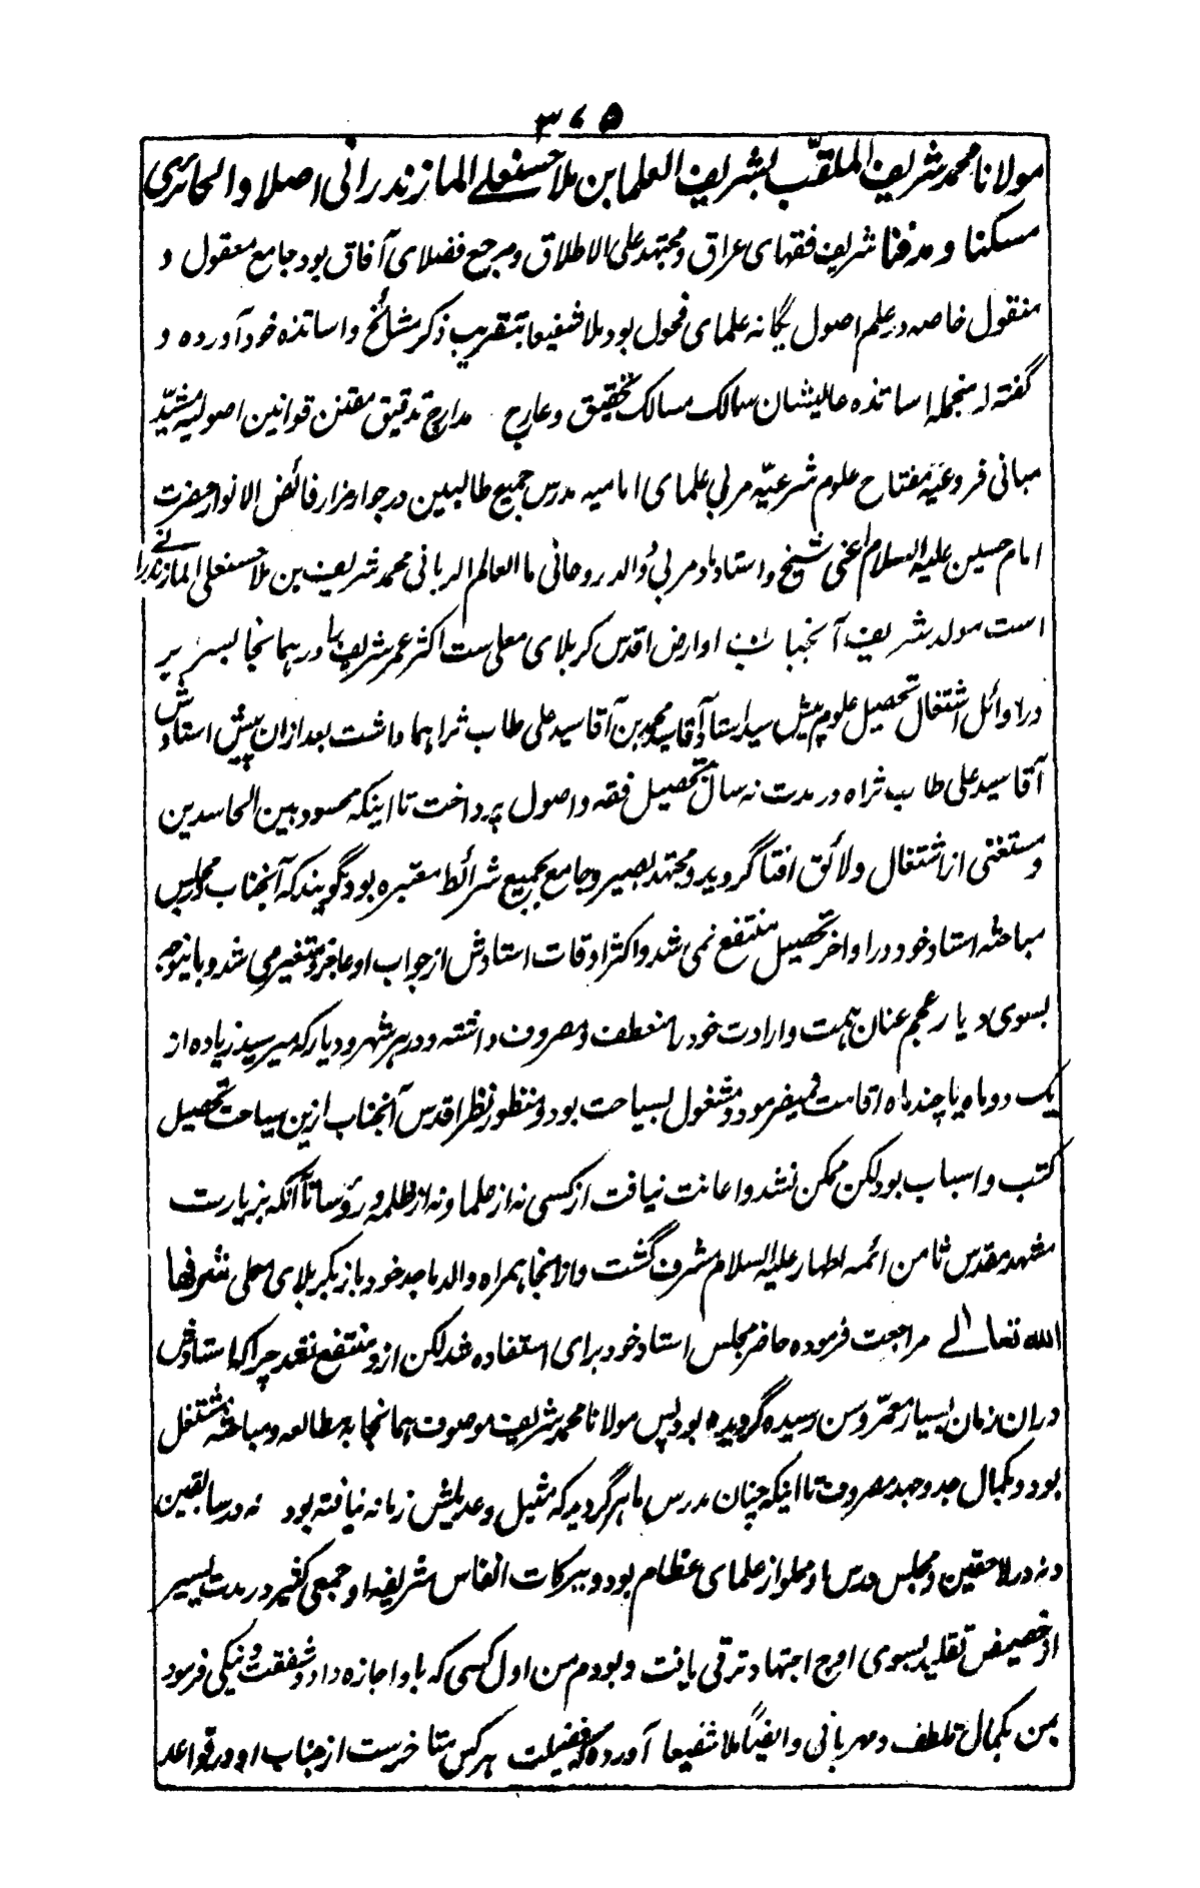 ۳۷۵
مولانا محمد شریف الملقّب بشریف العلما بن ملا حسنعلے المازندرانی اصلا و الحائری
مسکنا و مدفنا شریف فقهای عراق و مجتهد علی الاطلاق و مرجع فضلای آفاق بود جامع معقول و
منقول خاصه در علم اصول یگانه علمای فحول بود ملا شفیعا بتقریب ذکر مشائخ و اساتذه خود آورده و
گفته که منجمله اساتذه عالیشان سالک مسالک تحقیق و عارج مدارج تدقیق مقنن قوانین اصولیه مشیّد
مبانی فروعیه مفتاح علوم شرعیّه مربی علمای امامیه مدرس جمیع طالبین در جوار مزار فائض الانوار حضرت
امام حسین علیه السلام اعنی شیخ و استاد و مربی و والد روحانی ما العالم الربانی محمد شریف بن ملا حسنعلی المازندرانے
است مولد شریف آنجناب او ارض اقدس کربلای معلی ست اکثر عمر شریف را در همانجا بسر بر
در اوائل اشتغال تحصیل علوم پیش سید استاد آقا سید محمد بن آقا سید علی طاب ثراهما داشت بعد ازان پیش استادش
آقا سید علی طاب ثراه در مدت نه سال تحصیل فقه و اصول پرداخت تا اینکه محسود بین الحاسدین
و مستغنی از اشتغال و لائق افتا گردید و مجتهد بصیر و جامع جمیع شرائط معتبره بود گویند که آنجناب مجلس
مباحثه استاد خود در اواخر تحصیل منتفع نمی شد و اکثر اوقات استادش از جواب او عاجز و متغیر می شد و باینوجه
بسوی دیار عجم عنان همت و ارادت خود را منعطف و مصروف داشته و در هر شهر و دیار که میرسید زیاده از
یک دو ماه یا چند ماه اقامت میفرمود و مشغول بسیاحت بود و منظور نظر اقدس آنجناب ازین سیاحت تحصیل
کتب و اسباب بود لکن ممکن نشد و اعانت نیافت از کسی نه از علما و نه از ظلمه و رؤسا تا آنکه بزیارت
مشهد مقدس ثامن ائمه اطهار علیه السلام مشرف گشت و از انجا همراه والد ماجد خود باز بکربلای معلی شرفها
الله تعالے مراجعت فرموده حاضر مجلس استاد خود برای استفاده شد لکن ازو منتفع نشد چرا که استادش
دران زمان بسیار معمّر و سن رسیده گردیده بود پس مولانا محمد شریف موصوف همانجا به مطالعه و مباحثه مشتغل
بود و بکمال جد و جهد مصروف تا اینکه چنان مدرس ماهر گردید که مثیل و عدیلش زمانه نیافته بود نه در سابقین
و نه در لاحقین و مجلس درس او مملو از علمای عظام بود و ببرکات انفاس شریفه او جمعی کثیر در مدت یسیر
از حضیض تقلید بسوی اوج اجتهاد ترقی یافت و بودم من اول کسی که باو اجازه داد و شفقت و نیکی فرمود
بمن بکمال تلطف و مهربانی و ایضًا ملا شفیعا آورده که فضیلت هر کس متاخرست از جناب او در قواعد